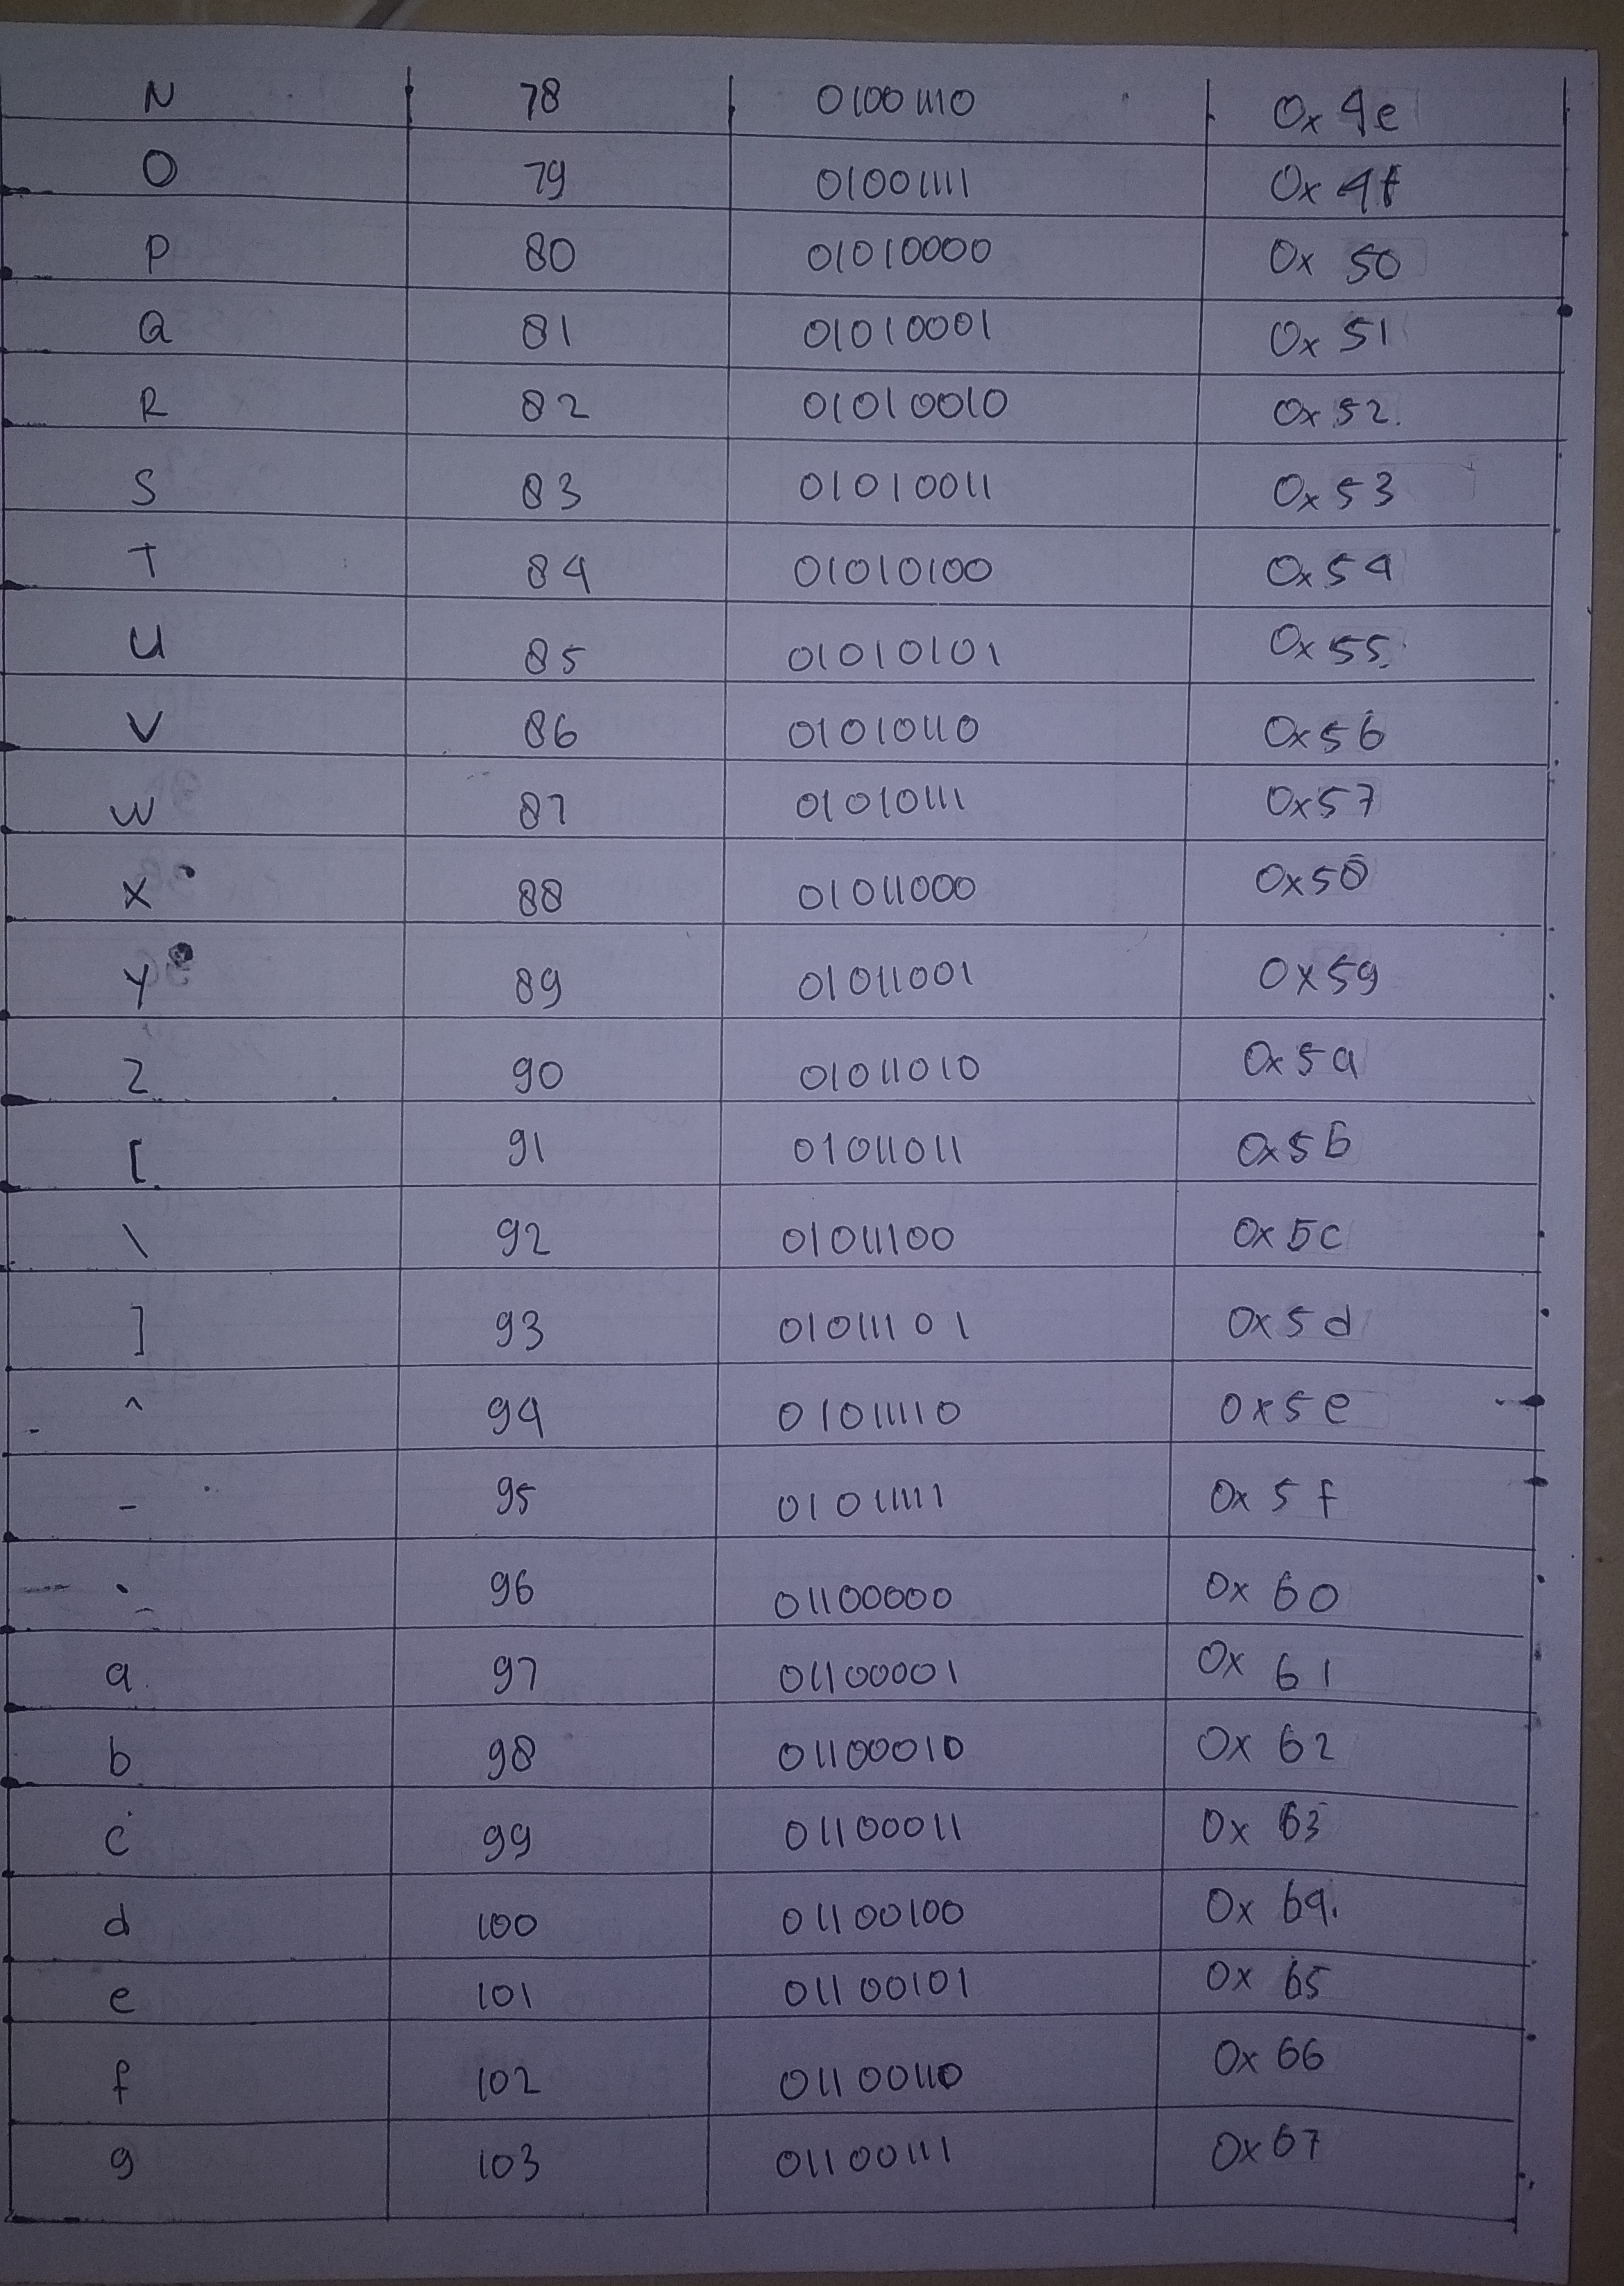 N 78 01001110 0x 4e
O 79 01001111 0x 4f
P 80 01010000 0x 50
Q 81 01010001 0x 51
R 82 01010010 0x 52.
S 83 01010011 0x 53
T 84 01010100 0x 54
U 85 01010101 0x 55.
V 86 01010110 0x56
W 87 01010111 0x57
X 88 01011000 0x58
Y 89 01011001 0x59
Z 90 01011010 0x5a
[ 91 01011011 0x5b
\ 92 01011100 0x 5c
] 93 01011101 0x 5d
^ 94 01011110 0x5e
- 95 01011111 0x 5f
` 96 01100000 0x 60
a 97 01100001 0x 61
b 98 01100010 0x 62
c 99 01100011 0x 63
d 100 01100100 0x 64.
e 101 01100101 0x 65
f 102 01100110 0x 66
g 103 01100111 0x67